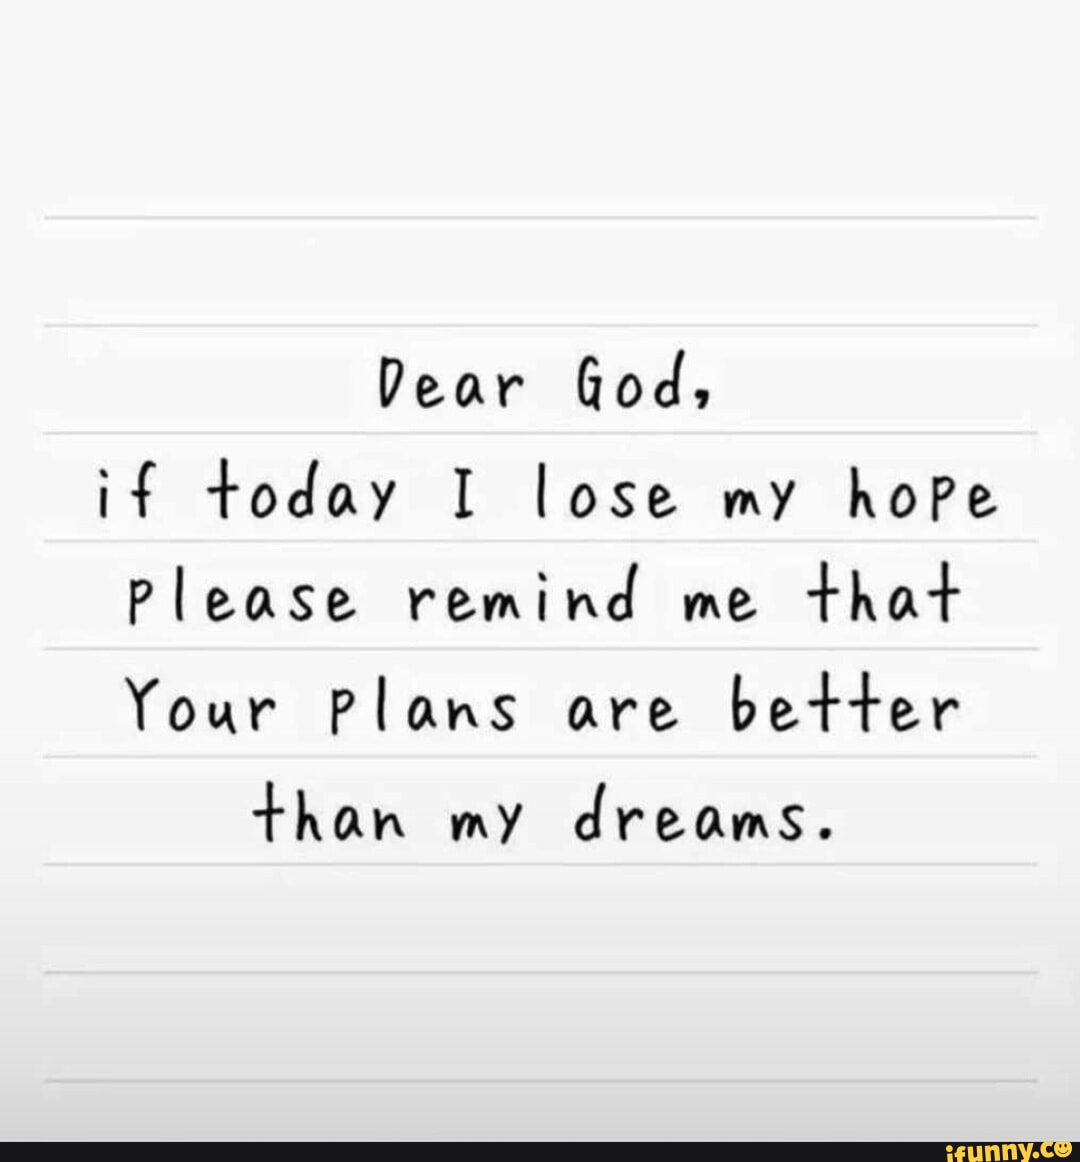 Dear God,
if today I lose my hope
please remind me that
Your plans are better
than my dreams.
ifunny.co